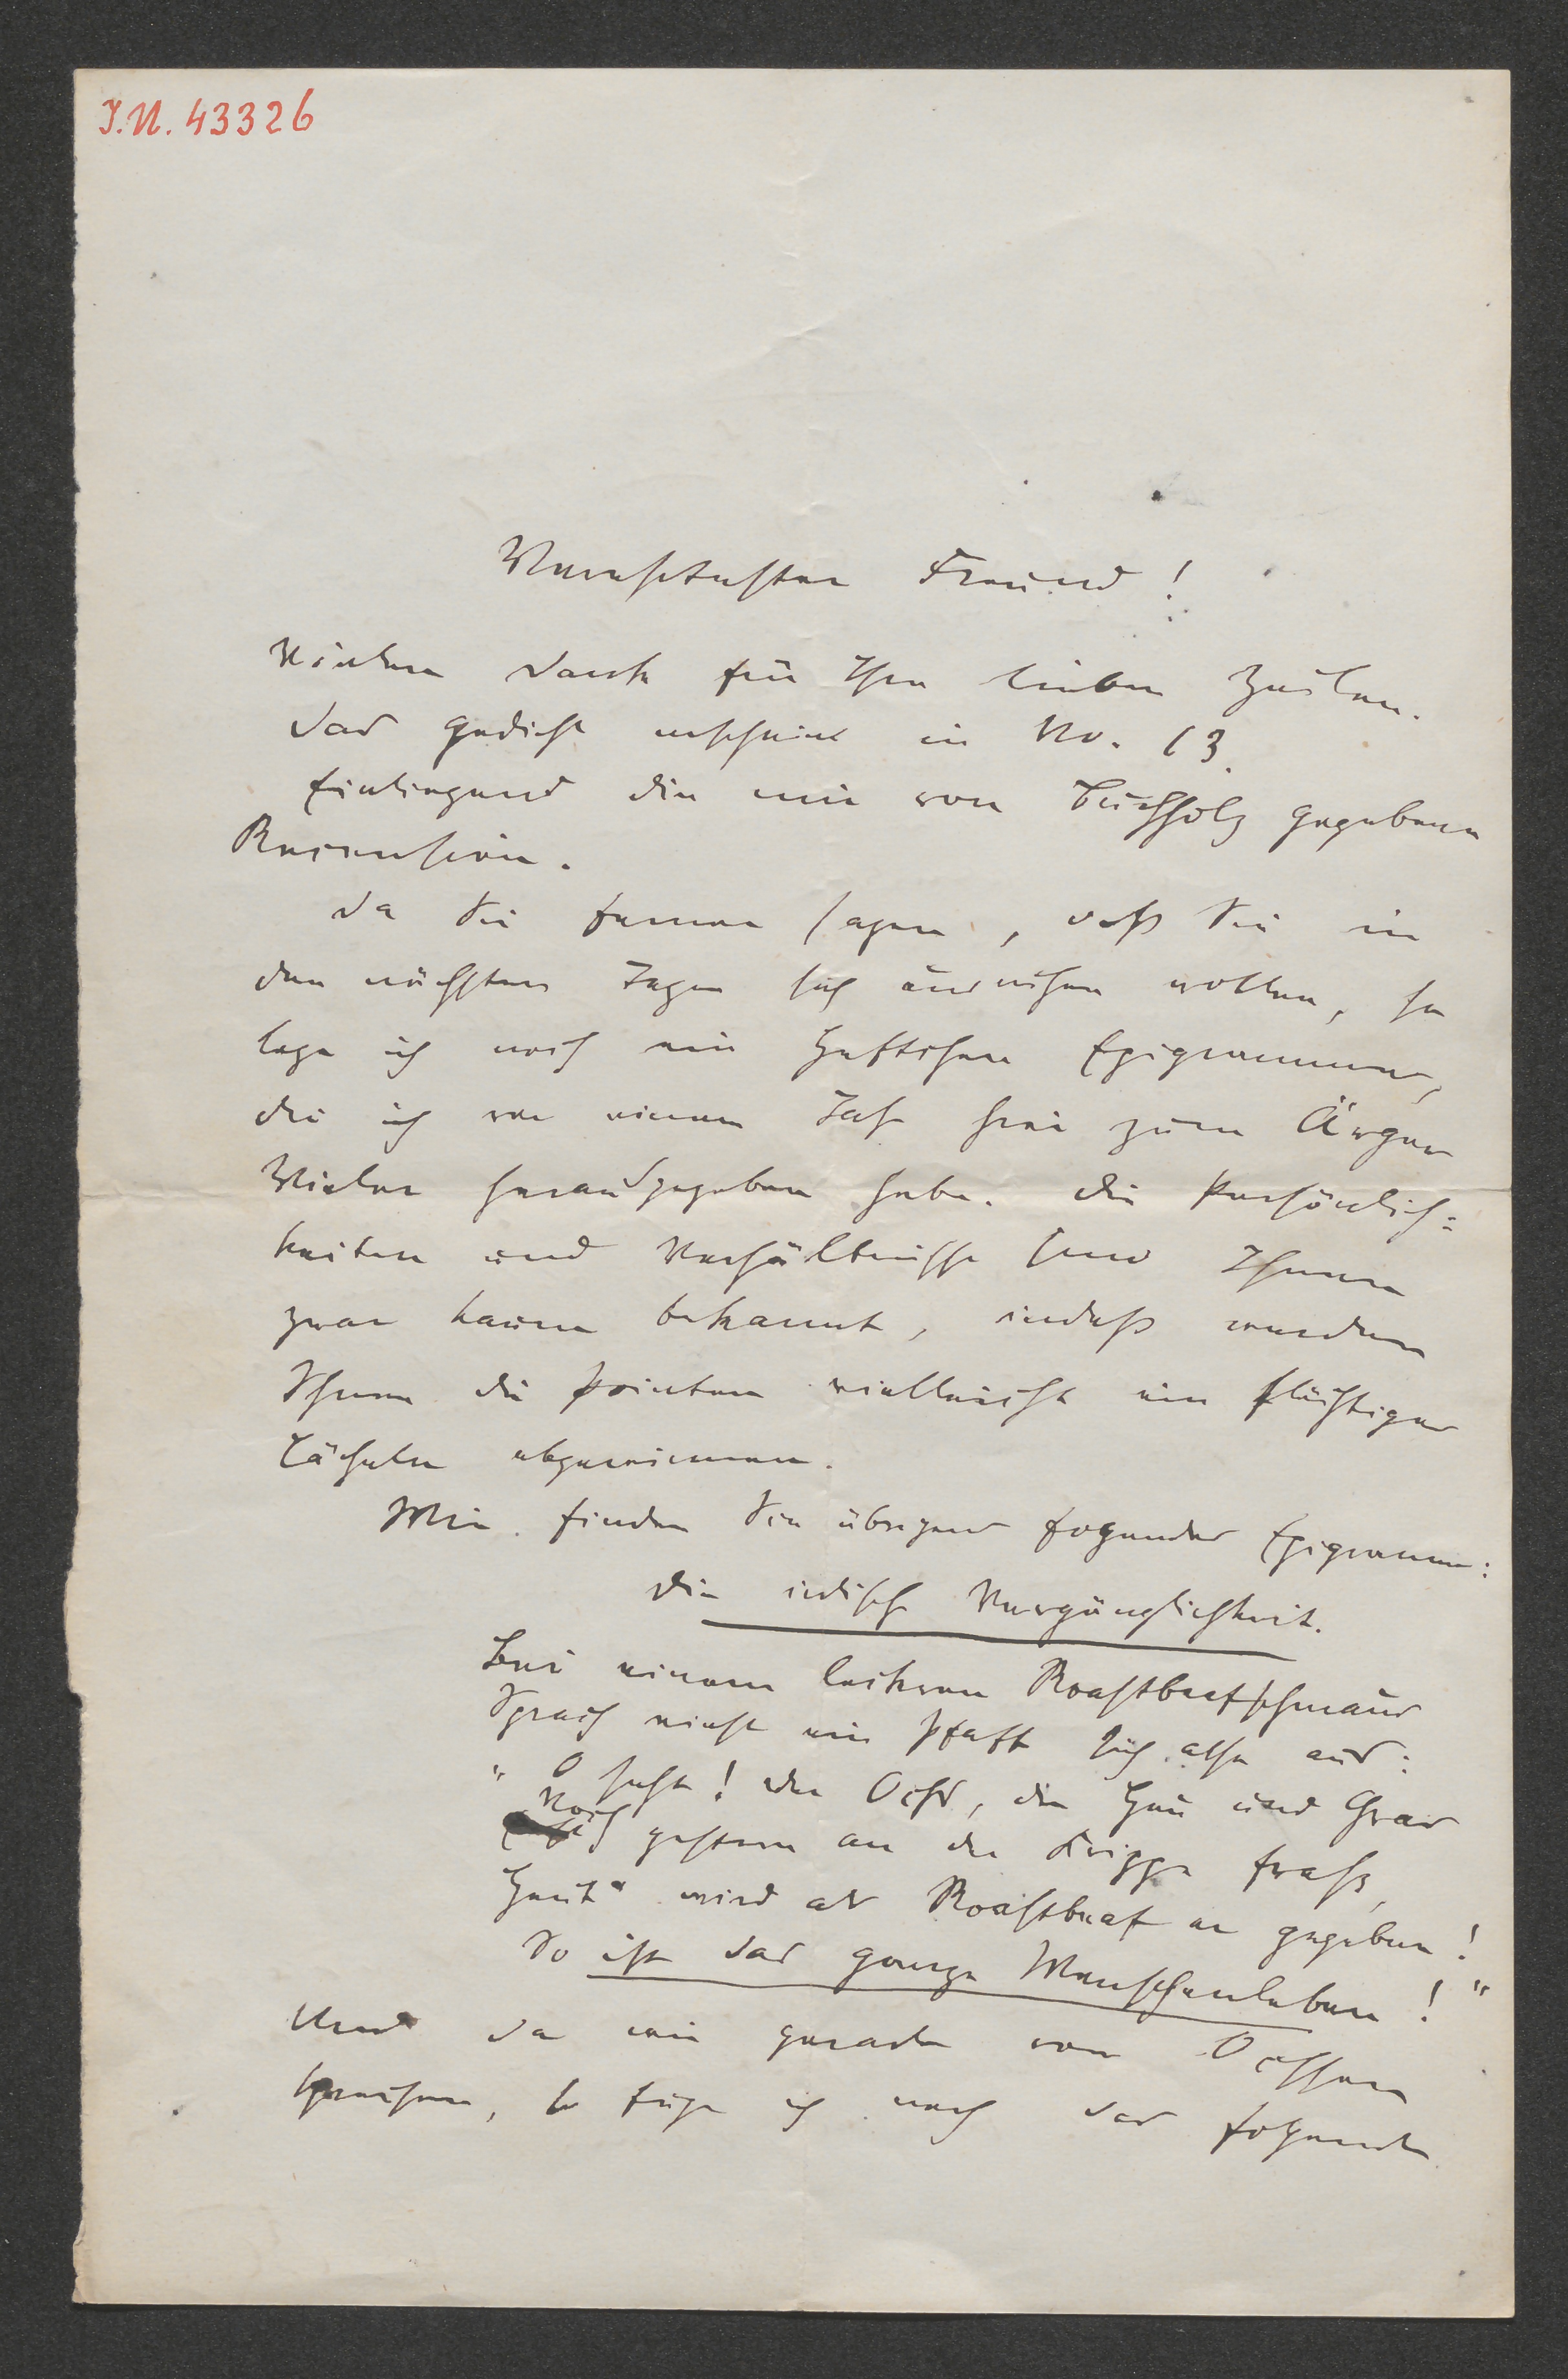 I.N. 43326
Verehrtester Freund!
Vielen Dank für Ihre lieben Zeilen.
Das Gedicht erscheint in No. 13.
Einliegend die mir von Buchholz gegebene
Recension.
Da Sie ferner sagen, daß Sie in
den nächsten Tagen sich ausruhen wollen, so
lege ich noch ein Heftchen Epigramme,
die ich vor einem Jahr hier zum Ärger
Vieler herausgegeben habe. Die Persönlich=
keiten und Verhältnisse sind Ihnen
zwar kaum bekannt, indeß werden
Ihnen die Pointen vielleicht ein flüchtiges
Lächeln abgewinnen.
Wie finden Sie übrigens folgendes Epigramm:
Die irdische Vergänglichkeit.
Bei einem leckren Roastbeefschmaus
Sprach einst ein Pfaff sich also aus:
"O seht! der Ochs, der Heu und Gras
Noch gestern an der Krippe fraß,
Heut' wird als Roastbeef er gegeben!
So ist das ganze Menschenleben!"
Und da wir gerade von Ochsen
sprechen, so füge ich noch das folgende